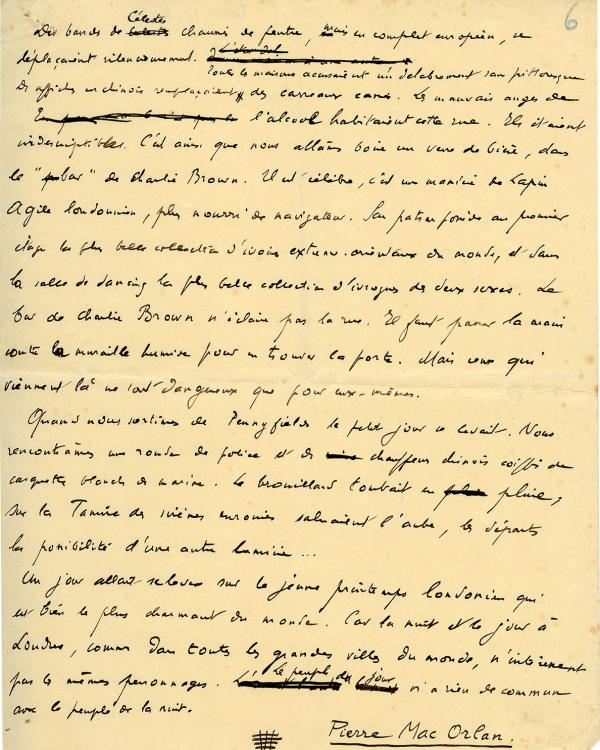 6
Célestes
Des bandes de chaussés de feutre, mais en complet européen, se
déplaçaient silencieusement.
Toutes les maisons accusaient un délabrement sans pittoresque
Des affiches en chinois remplaçaient des carreaux cassés. Les mauvais anges de
l'alcool habitaient cette rue. Ils étaient
indescriptibles. C'est ainsi que nous allâmes boire un verre de bière, dans
le "bar" de Charlie Brown. Il est célèbre, c'est une manière de Lapin
Agile londonien, plus nourri de navigateurs. Son patron possède au premier
étage la plus belle collection d'ivoires extrême-orientaux du monde, et dans
la salle de dancing la plus belle collection d'ivrognes des deux sexes. Le
bar de Charlie Brown n'éclaire pas la rue. Il faut passer la main
contre la muraille humide pour en trouver la porte. Mais ceux qui
viennent là ne sont dangereux que pour eux-mêmes.
Quand nous sortîmes de Pennyfields le petit jour se levait. Nous
rencontrâmes une ronde de police et des chauffeurs chinois coiffés de
casquettes blanches de marine. Le brouillard tombait en pluie ;
sur la Tamise des sirènes enrouées saluaient l'aube, les départs
la possibilité d'une autre lumière ...
Un jour allait se lever sur le jeune printemps londonien qui
est bien le plus charmant du monde. Car la nuit et le jour à
Londres, comme dans toutes les grandes villes du monde, n'intéressent
pas les mêmes personnages. le peuple du jour n'a rien de commun
avec le peuple de la nuit.
Pierre Mac Orlan.